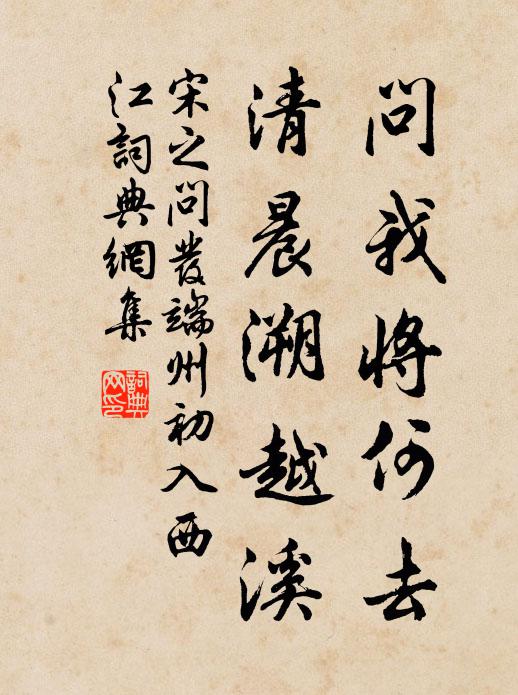 問我將何去
清晨溯越溪
宋之問發端州初入西
江詞典網集
詞典
网印